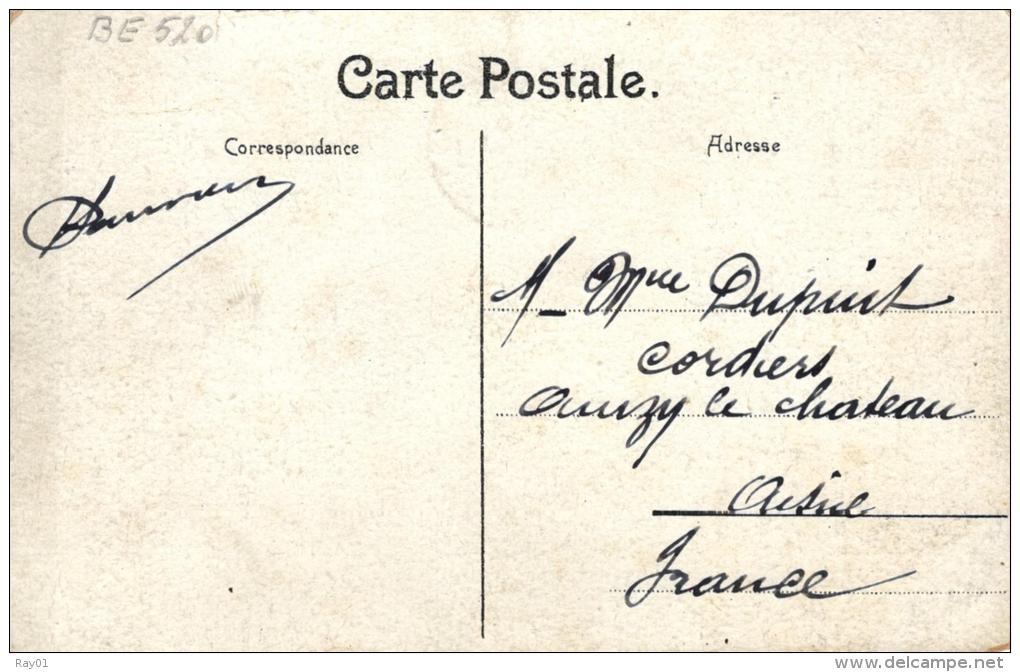 BE 520
Carte Postale.
Correspondance
Adresse
M_ Mme Dupuit
Cordiers
Anizy le chateau
Aisne
France
Ray01
delcampe.net